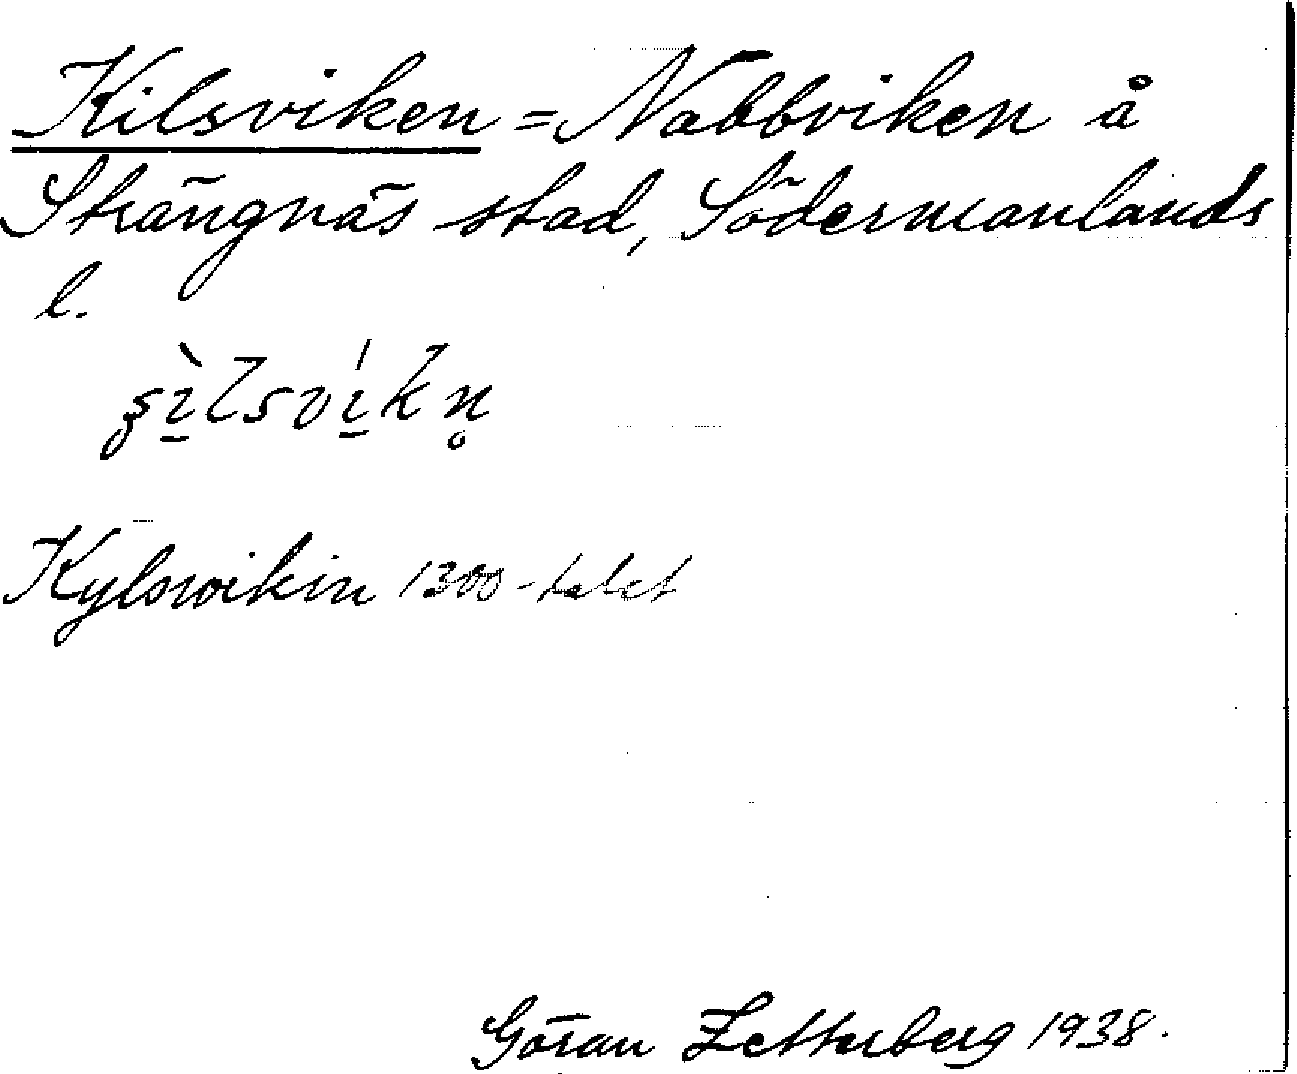 Kilsviken = Nabbviken å
Strängnäs stad, Södermanlands
l.
ʂı̱̀lsvı̱́kn̥
Kylswikin 1300-talet
Göran Zetterberg 1938.